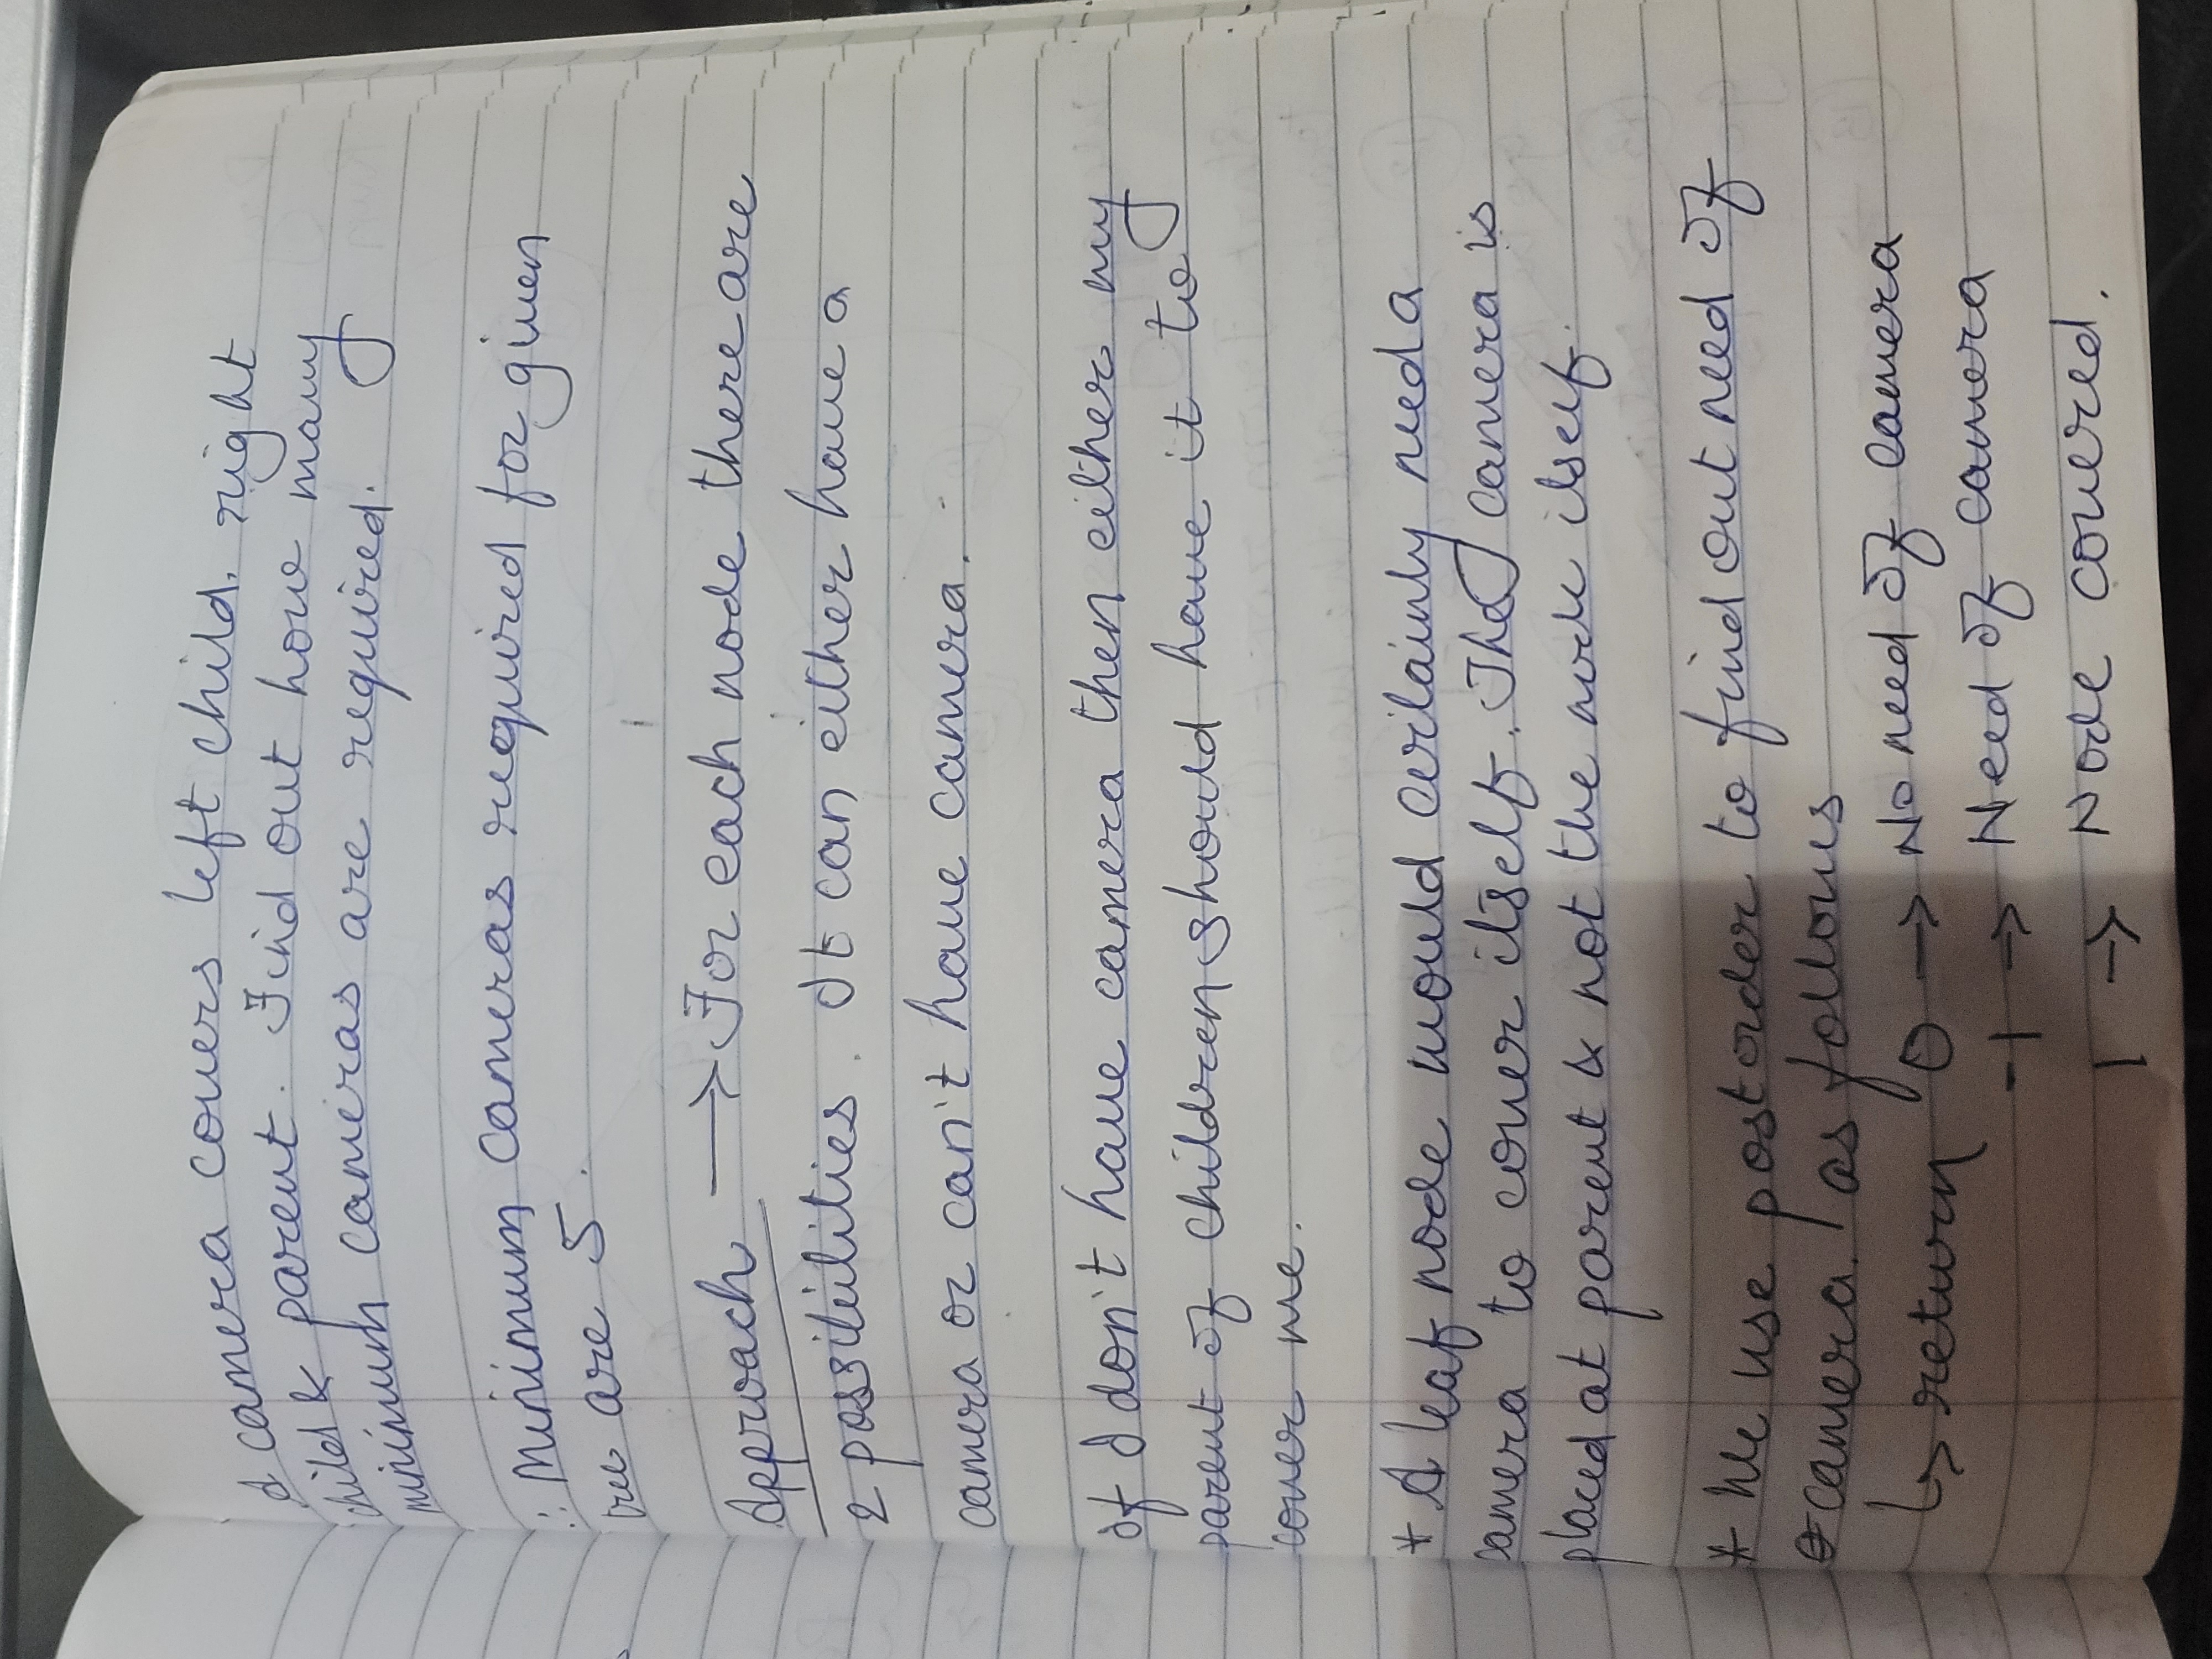 A camera covers left child, right
child & parent. Find out how many
minimum cameras are required.
∴ Minimum cameras required for given
tree are 5.
Approach → For each node there are
2 possibilities. It can either have a
camera or can't have camera.
If I don't have camera then either my
parent of children should have it to
cover me.
* A leaf node would certainly need a
camera to cover itself. The camera is
placed at parent & not the node itself.
* We use postorder to find out need of
camera. as follows
↳ return 0 → No need of camera
-1 → Need of camera
1 → Node covered.